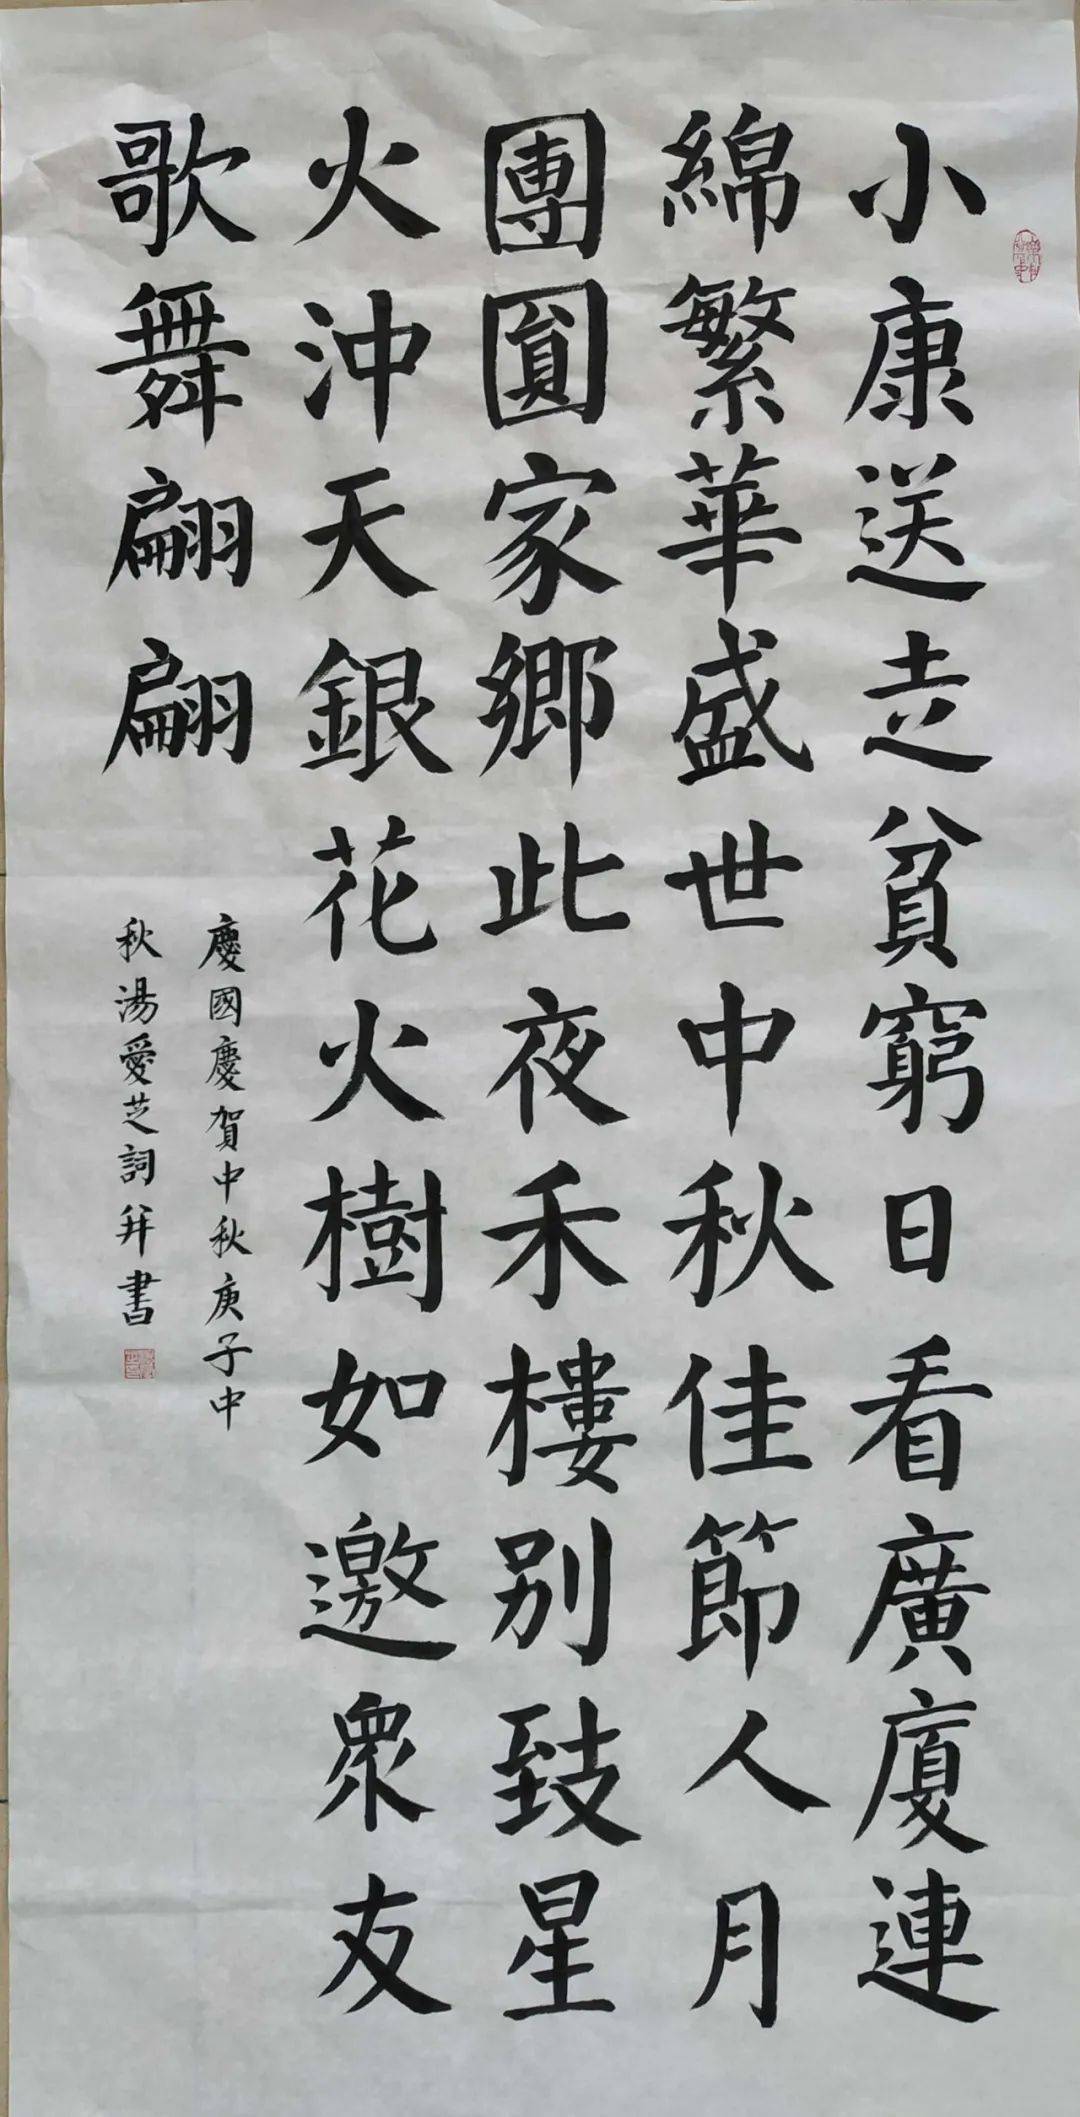 小康送走貧窮日看廣廈連
綿繁華盛世中秋佳節人月
團圓家鄉此夜禾樓別致星
火沖天銀花火樹如邀眾友
歌舞翩翩
慶國慶賀中秋庚子中
秋湯愛芝詞并書